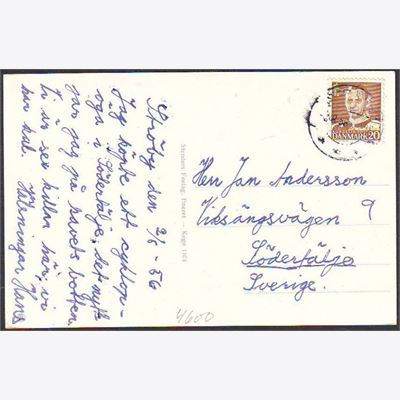 Strøby den 2/8 - 56
Jag köpte ett cyklop-
öga i Södertälje, det nytt-
jar jag på havets botten.
Vi är sex killar här, vi
har kul. Hälsningar Hans
Stenders Forlag. Eneret — Køge 1104
DANMARK 20
Herr Jan Andersson
Viksängsvägen 9
Södertälje
Sverige.
4600